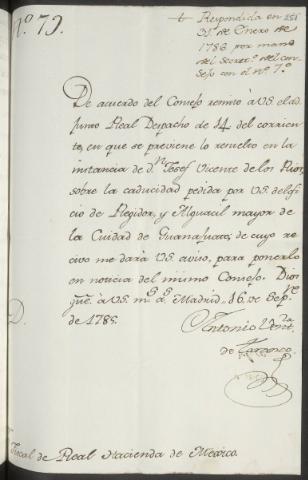 N.º 79.
+ Respondida en 
31 de Enero de
1786 por mano
del Secret.º del Con
sejo con el nº 7.º
De acuerdo del Consejo remito à VS. el ad
junto Real Despacho de 14 del corrien
te, en que se previene lo resuelto en la
instancia de d.n Josef Vicente de los Rios,
sobre la caducidad pedida por VS. del ofi
cio de Regidor, y Alguacil mayor de
la Ciudad de Guanajuato, de cuyo re
civo me dará VS. aviso, para ponerlo
en noticia del mismo Consejo. Dios
gue. à VS. m.s a.s Madrid, 16 de Sep.re
de 1785.
Antonio Vent.ra
de Taranco
D.
Fiscal de Real Hacienda de Mexico.